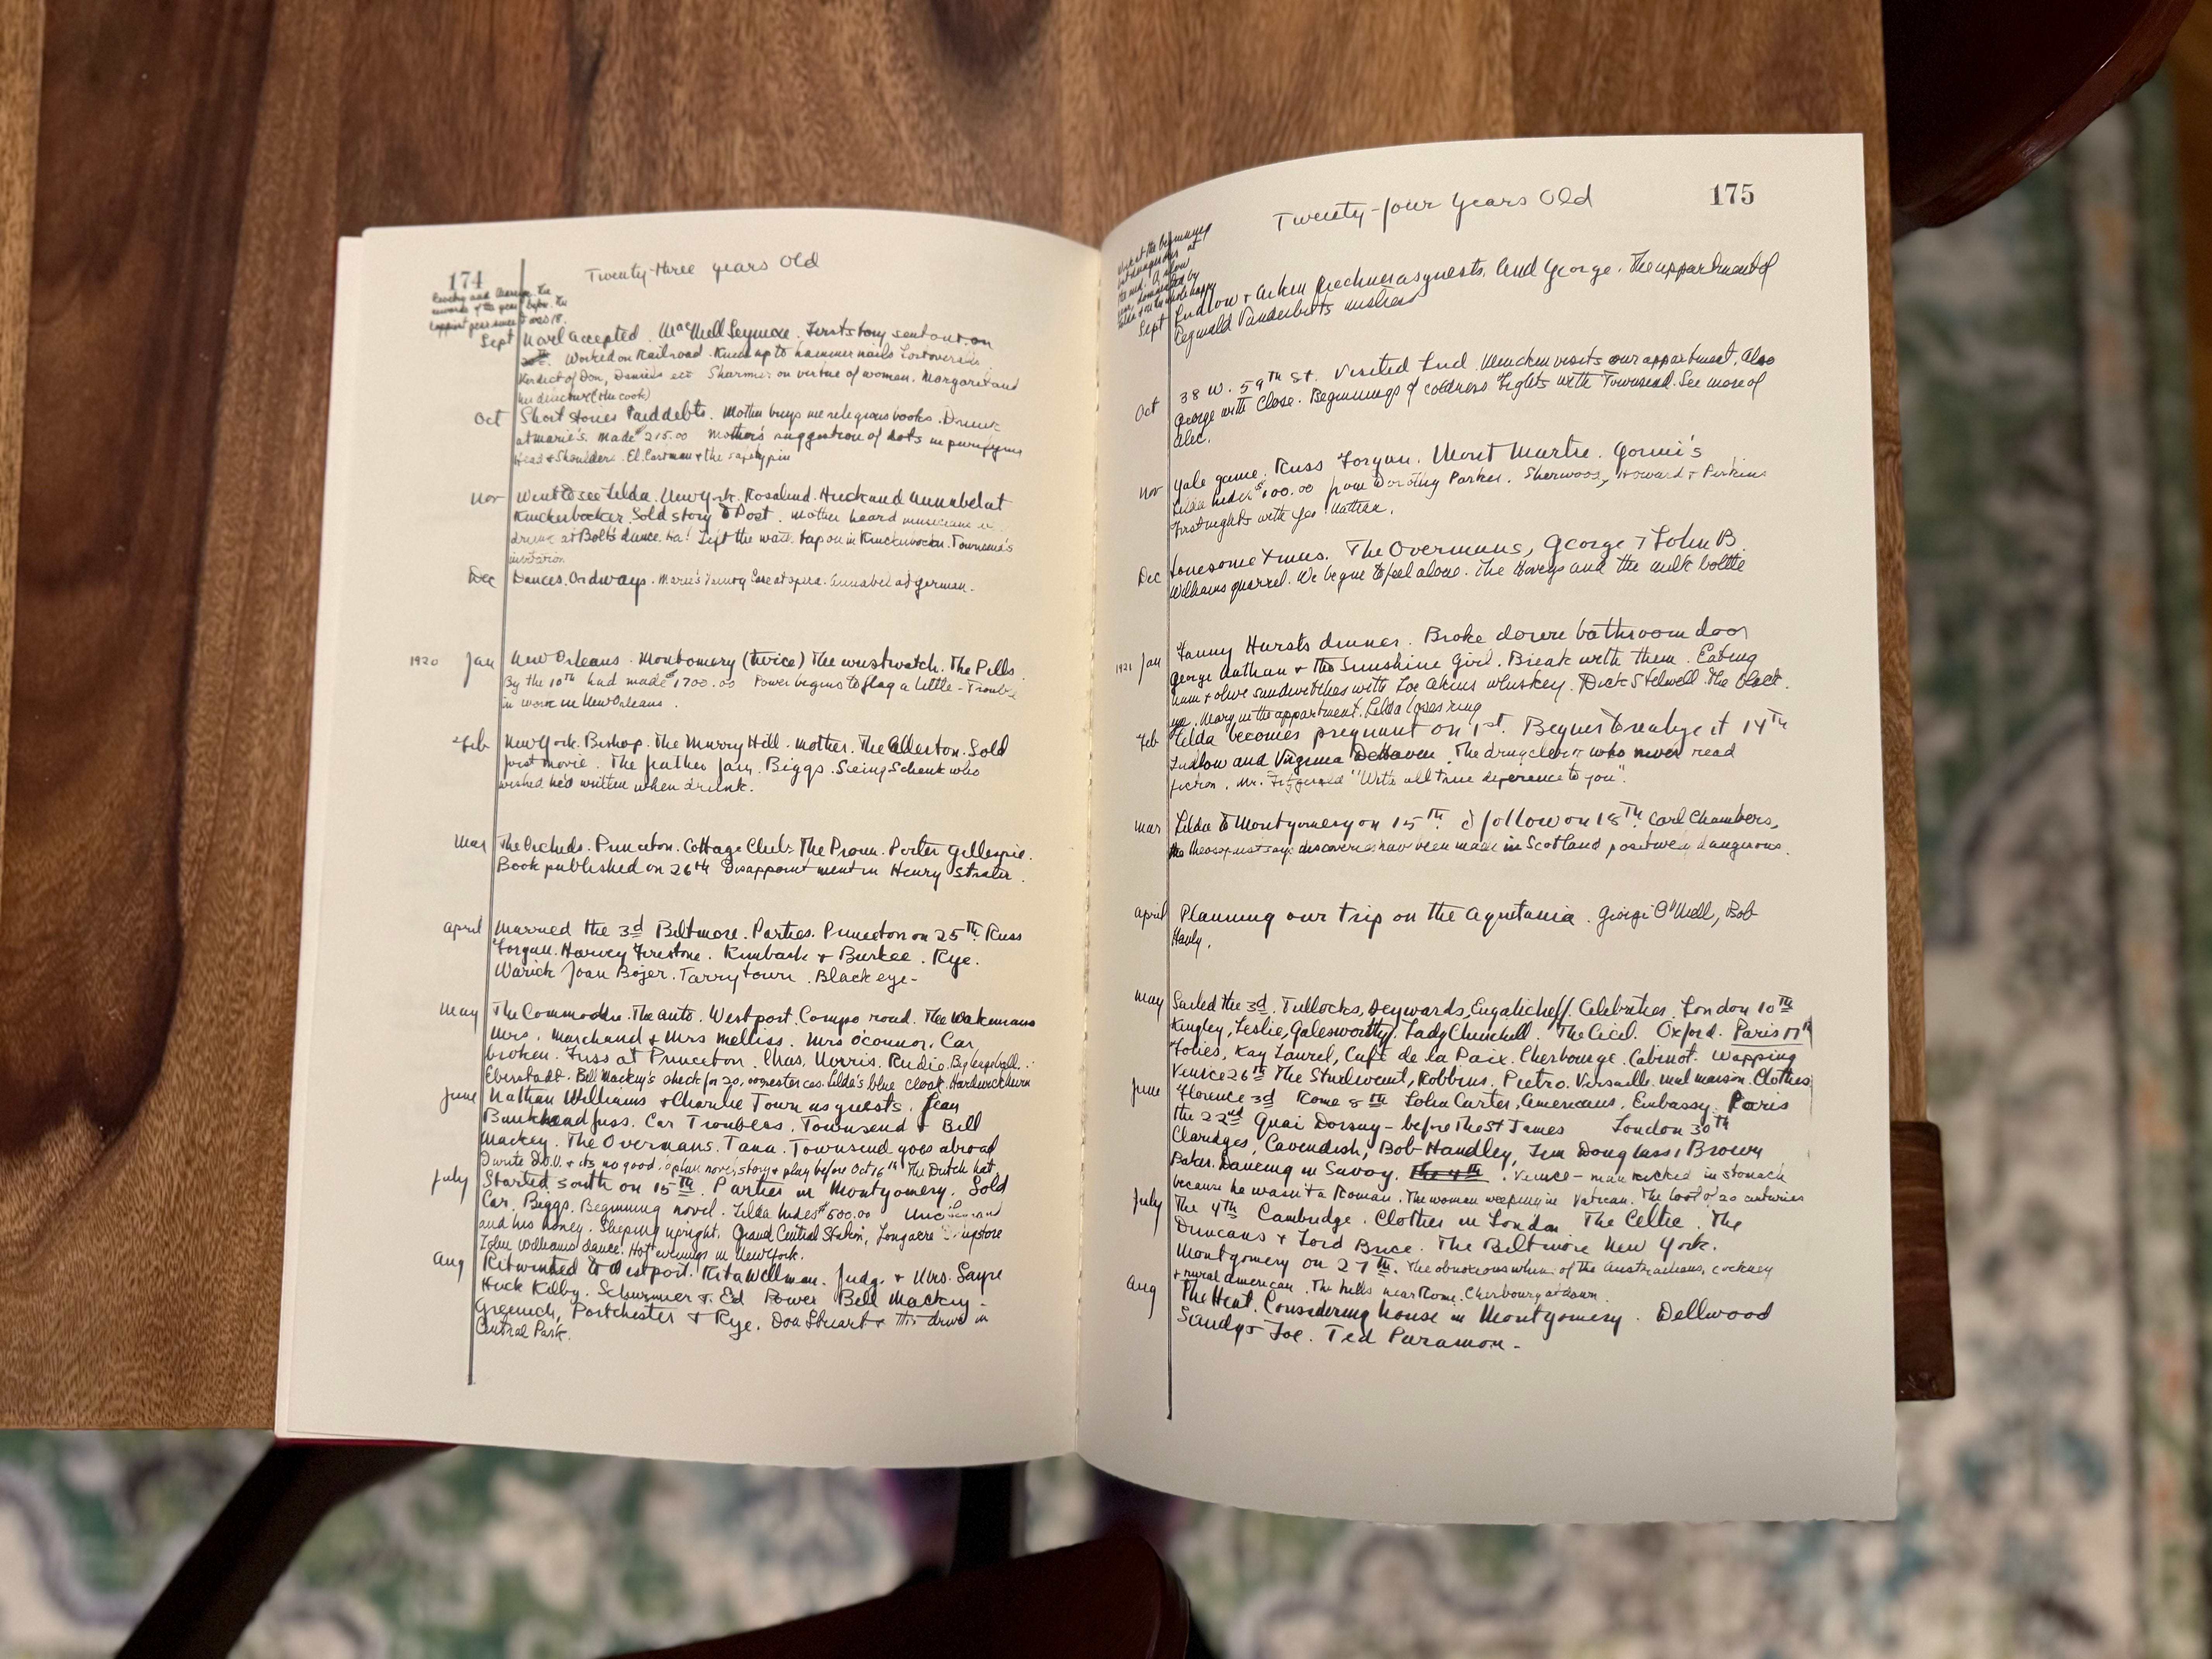 174
Twenty-three years Old
rewards of the year before. The
happiest year since I was 18.
Sept Novel accepted. MacNeill Seymour. First story sent out on
Worked on Railroad. Knew up to hammer nails Lost overalls
Verdict of Don, Daniels ect Sharmer on virtue of woman. Margaret and
(the cook)
Oct Short stories Paid debts. Mother buys me religious books. Drunk
at marie's. Made $215.00 Mother's suggestion of hots in
Head & Shoulders. El. Eastman & the safety pin
Nov Went to see Zelda. New York. Rosalind. Huck and Annabel at
Knickerbocker. Sold story to Post. Mother heard
drunk at Bolt's dance. Ha! Left the water tap on in Knickerbocker. Townsend's
invitation
Dec Dances. Ordways. Marie's Fancy at opera. Annabel at german.
1920 Jan New Orleans. Montgomery (twice) The wristwatch. The Pills.
By the 10th had made $1700.00 Power begins to flag a little - Trouble
in work in New Orleans.
Feb New York. Bishop. The Murry Hill. Mother. The Allerton. Sold
first movie. The father Jam. Biggs. Seeing Schenk who
wished he'd written when drunk.
Mar The Orchids. Princeton. Cottage Club. The Prom. Porter Gillespie.
Book published on 26th Disappointment in Henry Strater.
April Married the 3d Biltmore. Parties. Princeton on 25th Russ
Forgan. Harvey Firestone. Kimbark & Burkee. Rye.
Warick Joan Bojer. Tarrytown. Black eye-
May The Commodore. The auto. Westport. Compo road. The Wakemans
Mrs. Marchand & Mrs Melliss. Mrs O'connor. Car
broken. Fuss at Princeton. Chas. Norris. Rudie.
Eberstadt. Bill Mackey's check for 20, Zelda's blue cloak.
June Nathan Williams & Charlie Town as guests. Jean
Bankhead fuss. Car Troubles. Townsend & Bill
Mackey. The Overmans. Tana. Townsend goes abroad
I write & its no good. plan novel, story & play before Oct 16th The Dutch hat.
July Started south on 15th. Parties in Montgomery. Sold
Car. Biggs. Beginning novel. Zelda hides $500.00
and his honey. Sleeping upright. Grand Central Station, Longacre
John Williams dance. Hot evenings in New York.
Aug Returned to Westport. Rita Wellman. Judge & Mrs. Sayre
Huck Kilby. Schurmier & Ed Power Bill Mackey.
Greenich, Portchester & Rye. Don Stuart & drive in
Central Park.
175
Twenty-four years Old
Work at the beginning
but dangerous at
the end. A slow
year, dominated by
Zelda & on the whole happy
Sept Ludlow & as guests. And George. The appartment of
Reginald Vanderbilts mistress
Oct 38 W. 59th St. Visited Lud. Mencken visits our appartment. Also
George with Close. Beginnings of coldness Fights with Townsend. See more of
Alec.
Nov Yale game. Russ Forgan. Mont Martre. Gonni's
Zelda hides $100.00 from Dorothy Parker. Sherwood, Howard & Perkins
First nights with Geo. Nathan.
Dec Lonesome Xmas. The Overmans, George & John B.
Williams quarrel. We begin to feel alone. The Hoveys and the milk bottle
1921 Jan Fanny Hursts dinner. Broke down bathroom door
George Nathan & the Sunshine Girl. Break with them. Eating
ham & olive sandwitches with Zoe Akins whiskey. Dick Stilwell. The clock.
Mary in the appartment. Zelda loses ring
Feb Zelda becomes pregnant on 1st. Begins to realize it 14th
Ludlow and Virginia DeHaven. The drug clerk who never read
fiction. Mr. Fitzgerald "With all true deference to you".
Mar Zelda to Montgomery on 15th. I follow on 18th. Carl Chambers,
the theosophist says discoveries have been made in Scotland positively dangerous.
April Planning our trip on the Aquitania. George O'Neill, Bob
Hanly.
May Sailed the 3d. Tullocks, Deywards, Engalicheff. Celebrities. London 10th
Kingley, Leslie, Galesworthy. Lady Churchill. The Cecil. Oxford. Paris 17th
Folies, Kay Laurel, Café de la Paix. Cherbourge. Cabinot. Wapping
Venice 26th The Sturdivant, Robbins. Pietro. Versaille. Mal maison. Clothes
June Florence 3d Rome 8th John Carter, Americans, Embassy. Paris
the 22nd Quai Dorsay - before the St James London 30th
Claridges, Cavendish, Bob Handley, Jim Douglass, Brown
Baker. Dancing in Savoy. The 4th. Venice - man kicked in stomach
because he wasn't a Roman. The woman weeping in Vatican. The loot of 20 centuries
July The 4th Cambridge. Clothes in London The Celtic. The
Duncans & Lord Brice. The Biltmore New York.
Montgomery on 27th. The obnoxious of the Australians, cockney
& rural american. The hills near Rome. Cherbourg at dawn.
Aug The Heat. Considering house in Montgomery. Dellwood
Sandy & Joe. Ted Paramon.-